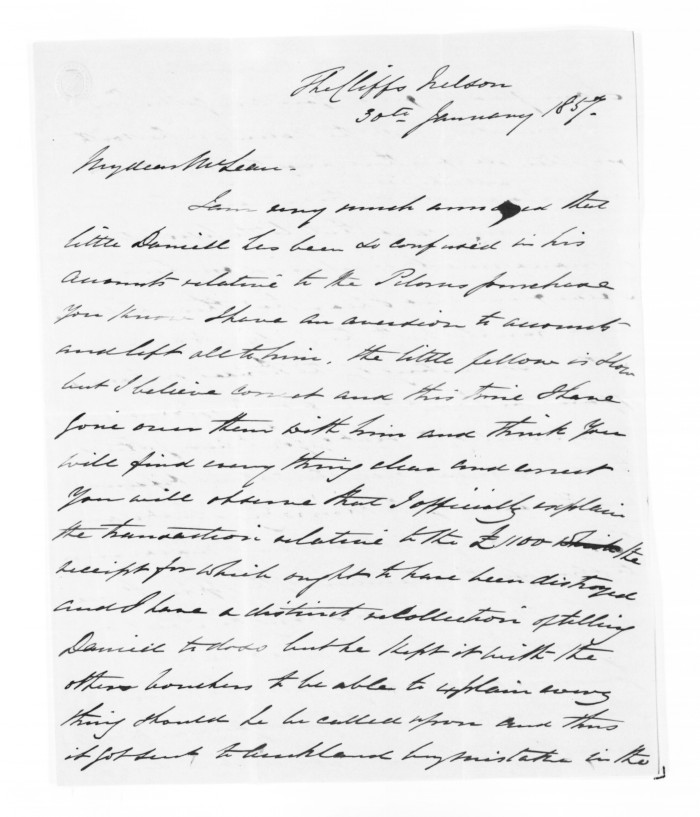 The Cliffs Nelson
30th January 1857.
My dear McLean.
I am very much annoyed that
little Daniell has been so confused in his
accounts relative to the Pelorus purchase
You know I have an aversion to accounts
and left all to him. the little fellow is slow
but I believe correct and this time I have
gone over them with him and think you
will find every thing clear and correct.
You will observe that I officially explain
the transaction relative to the £1100 the
receipt for which ought to have been distroyed
and I have a distinct recollection of telling
Daniell to do so but he kept it with the
others vouchers to be able to explain every
thing should he be called upon and thus
it got sent to Auckland by mistake in the